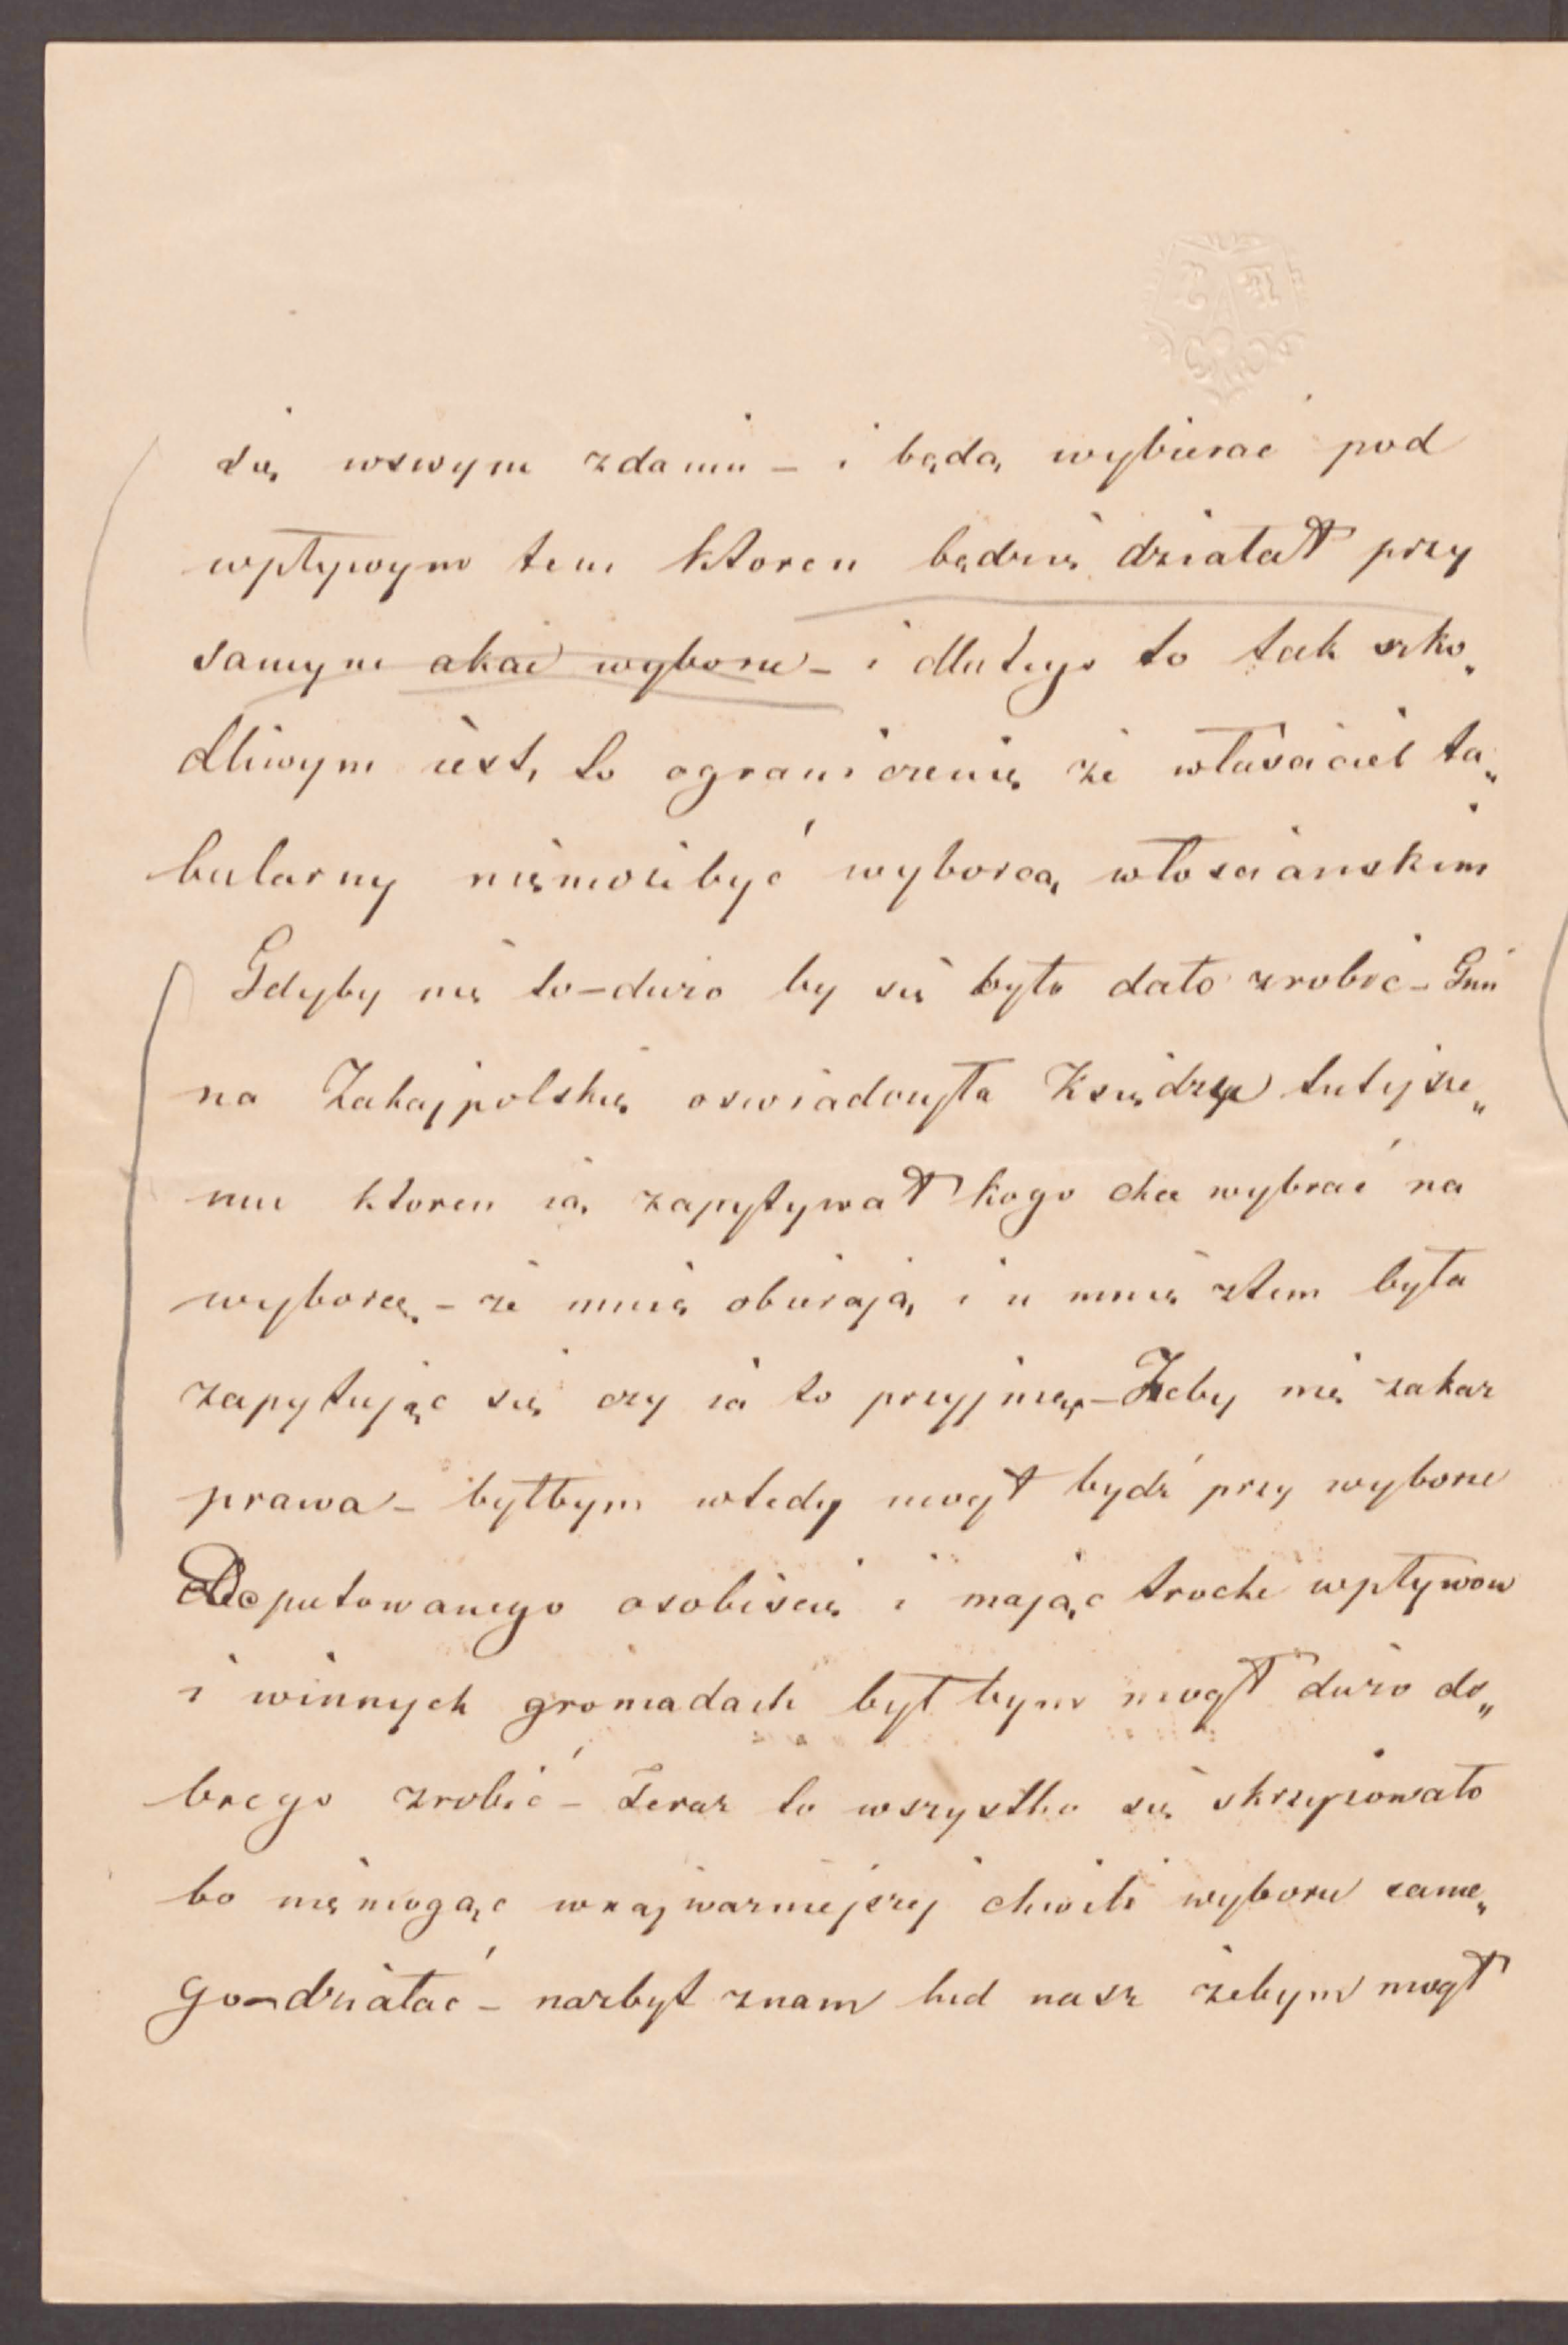 się wswym zdaniu – i będą wybierac pod
wpływym tem ktoren będzie działał przy
samym akcie wyboru – i dlatego to tak szko„
dliwym iest, to ograniczenie że własciciel ta„
bularny niemoże być wyborcą włosciańskim
Gdyby nie to – dużo by się było dało zrobić – Gmi
na Zakajpolskie oswiadczyła Księdzu tutejsze„
mu ktoren ią zapytywał kogo chce wybrać na
wyborcę – że mnie obierają i u mnie ztem była
zapytując się czy ia to przyjmę – Żeby nie zakaz
prawa – byłbym wtedy mogł bydź przy wyborze
Deputowanego osobiscie i mając troche wpływow
i winnych gromadach był bym mogł dużo do„
brego zrobić – Teraz to wszystko się skrzyżowało
bo niemogąc wnajwazniejszej chwili wyboru same„
go – działać – nazbyt znam lud nasz żebym mogł